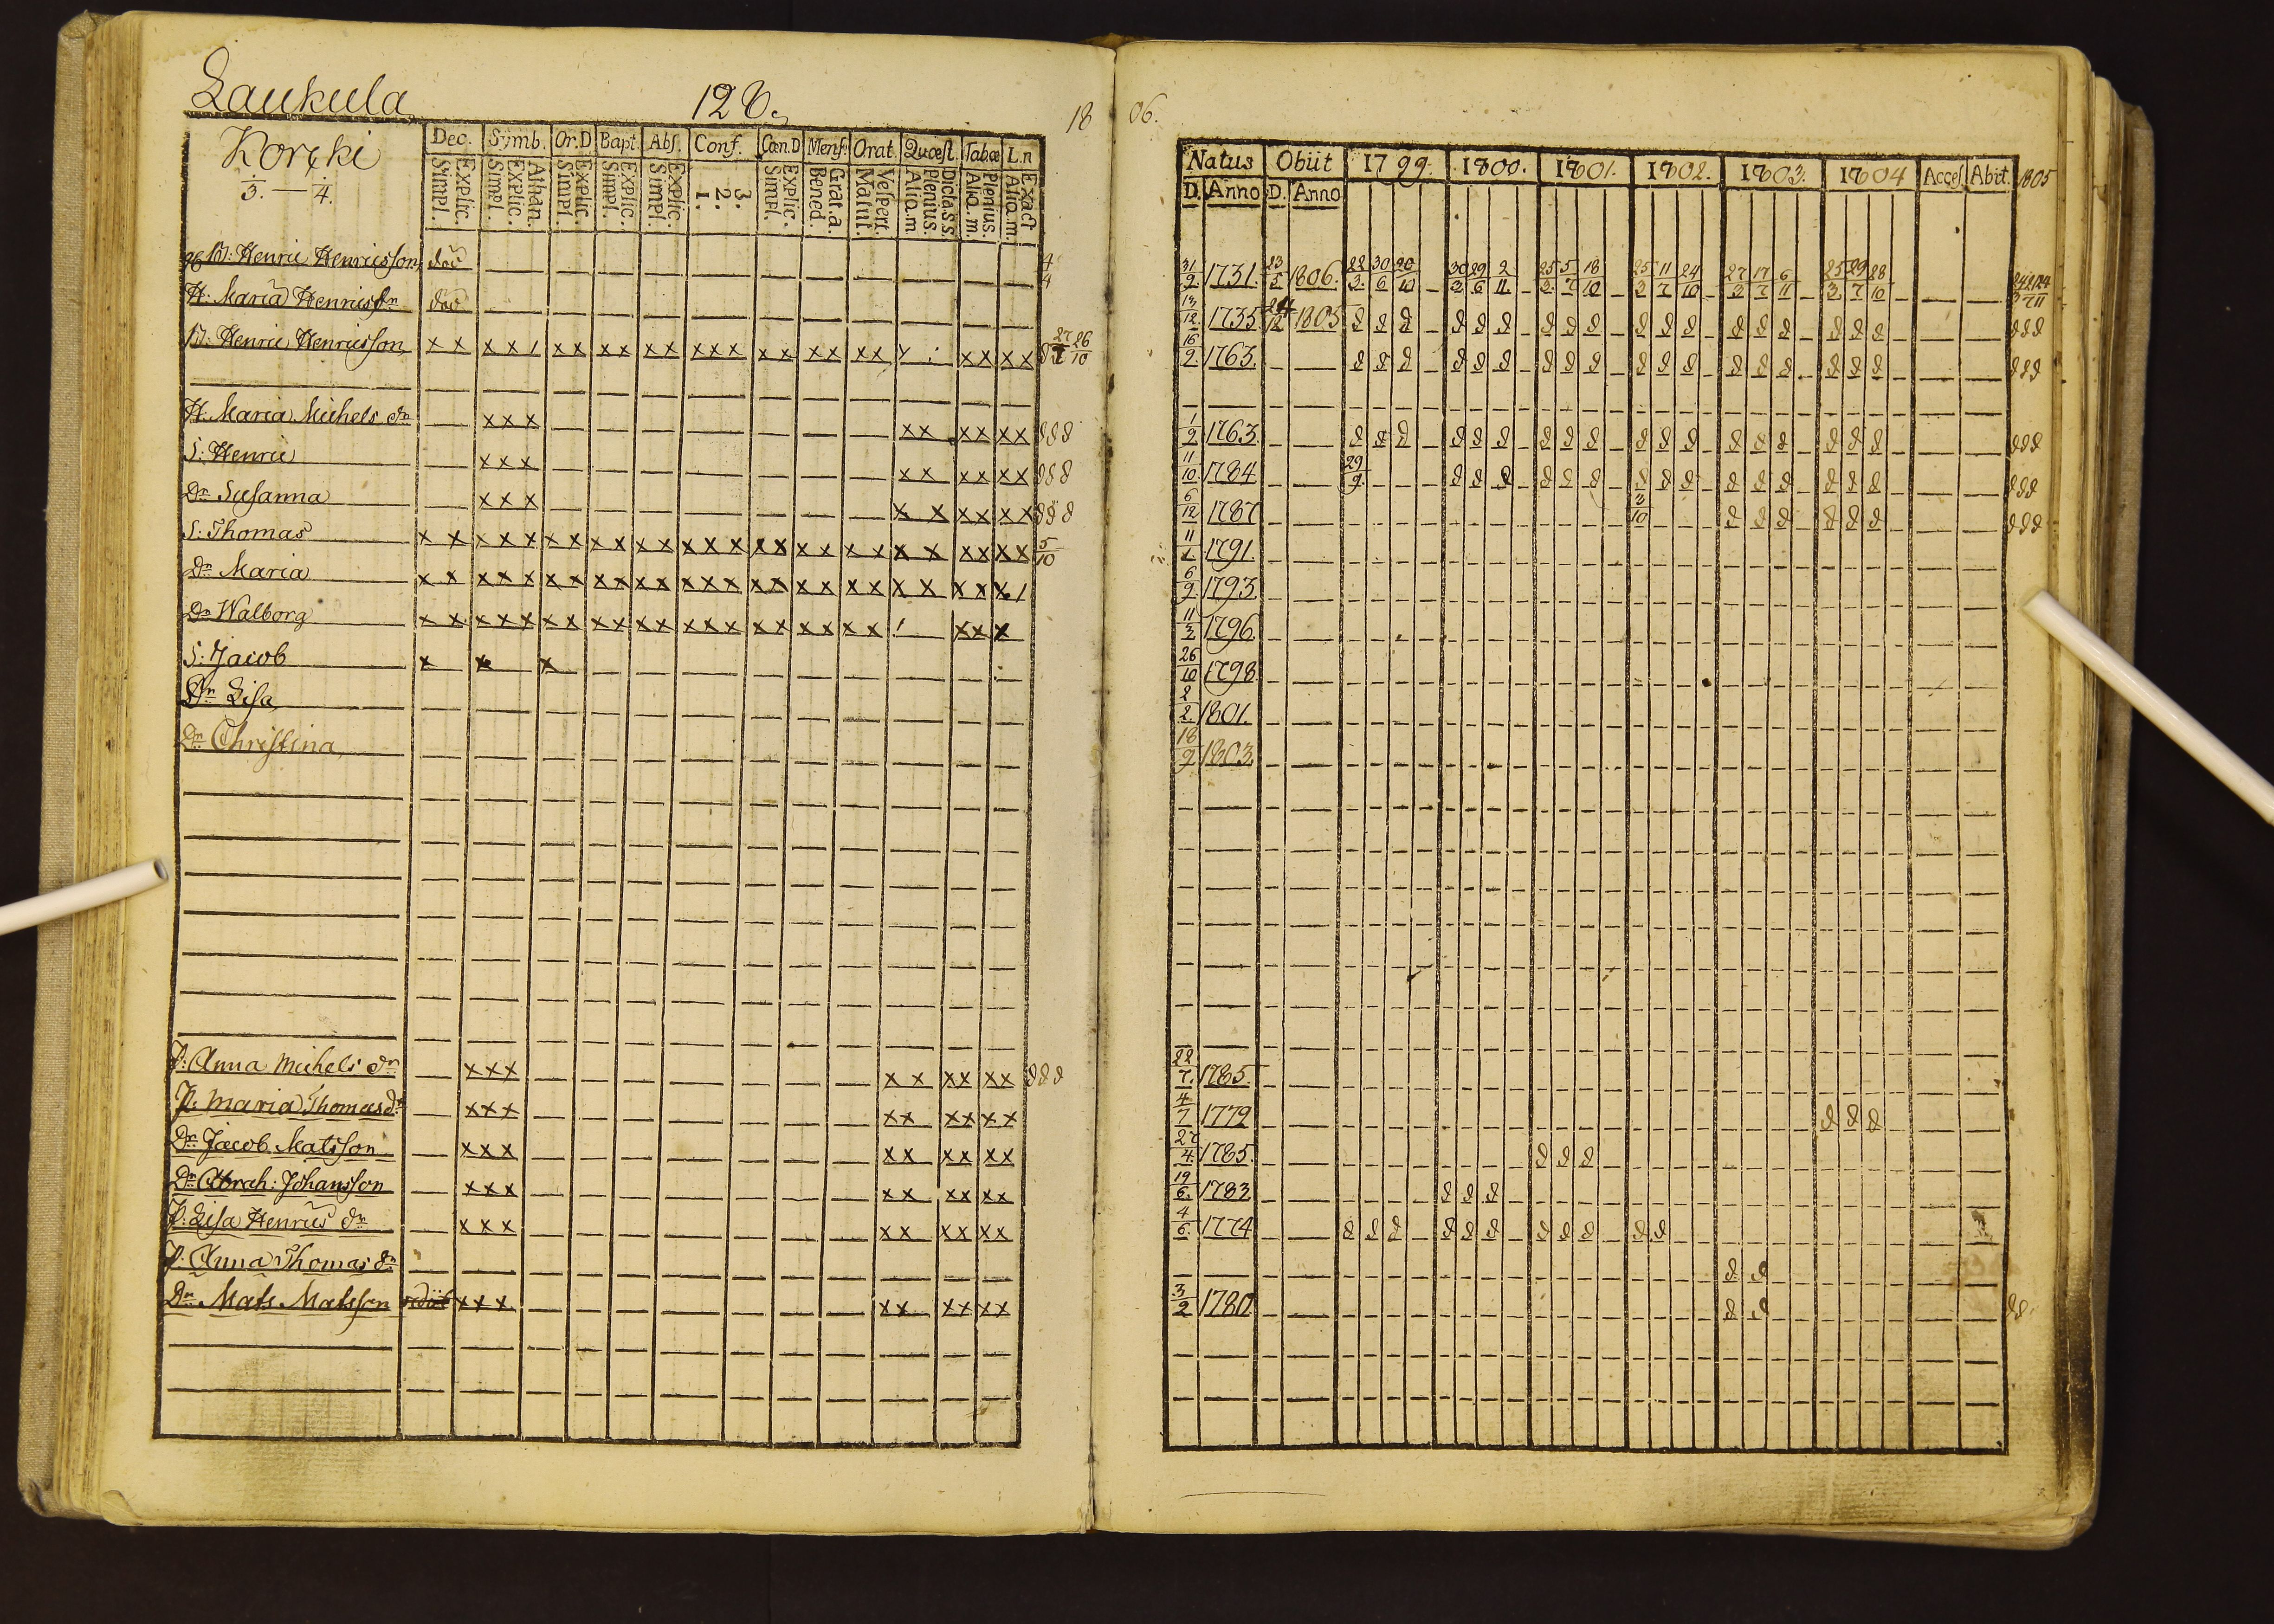 Laukula
128.
18 06.
Korcki
3. — 4.
Dec. Symb. Or.D Bapt. Abs. Conf. Cœn.D Mens. Orat. Quæst. Tabœ L.n
Explic. Simpl. Athan. Explic. Simpl. Explic. Simpl. Explic. Simpl. Explic. Simpl. 3. 2. 1. Explic. Simpl. Grat.a. Bened. Vespert. Matut. Dicta.s.s. Plenius. Aliq.m. Plenius. Aliq.m. Exact Aliq.m.
Henric Henricsson
H: Maria Henricsdr
Henric Henricsson x x x x / x x x x x x x x x x x x x x x x x x x x x
H. Maria Michels dr x x x x x x x x x
S: Henric x x x x x x x x x
Dr Susanna x x x x x x x x x
S: Thomas x x x x x x x x x x x x x x x x x x x x x x x x x x 5/10
Dr Maria x x x x x x x x x x x x x x x x x x x x x x x x x /
Dr Walborg x x x x x x x x x x x x x x x x x x x x / x x x
S: Jacob x x x
Dr Lisa
Dr Christina
P: Anna Michels dr x x x x x x x x x
P: Maria Thomasdr x x x x x x x x x
Dr Jacob Matsson x x x x x x x x x
Dr Abrah: Johansson x x x x x x x x x
P: Lisa Henrics dr x x x x x x x x x
P: Anna Thomas dr
Dr Mats Matsson x x x x x x x x x
Natus Obiit 1799. 1800. 1801. 1802. 1803. 1804 Acces Abit. 1805
D. Anno D. Anno
31/9 1731. 23/5 1806. 22/3 30/6 20/10 30/3 29/6 2/11 25/3 5/7 18/10 25/3 11/7 24/10 27/3 17/7 6/11 25/3 29/7 28/10
13/12 1735 24/12 1805
16/2 1763.
1/9 1763
11/10 1784 29/9
6/12 1787 3/10
11/1 1791.
6/9 1793
11/3 1796
26/10 1798
2/2 1801
18/9 1803.
22/7 1785.
4/7 1779
27/4 1785.
19/6 1783
4/6 1774
3/2 1780